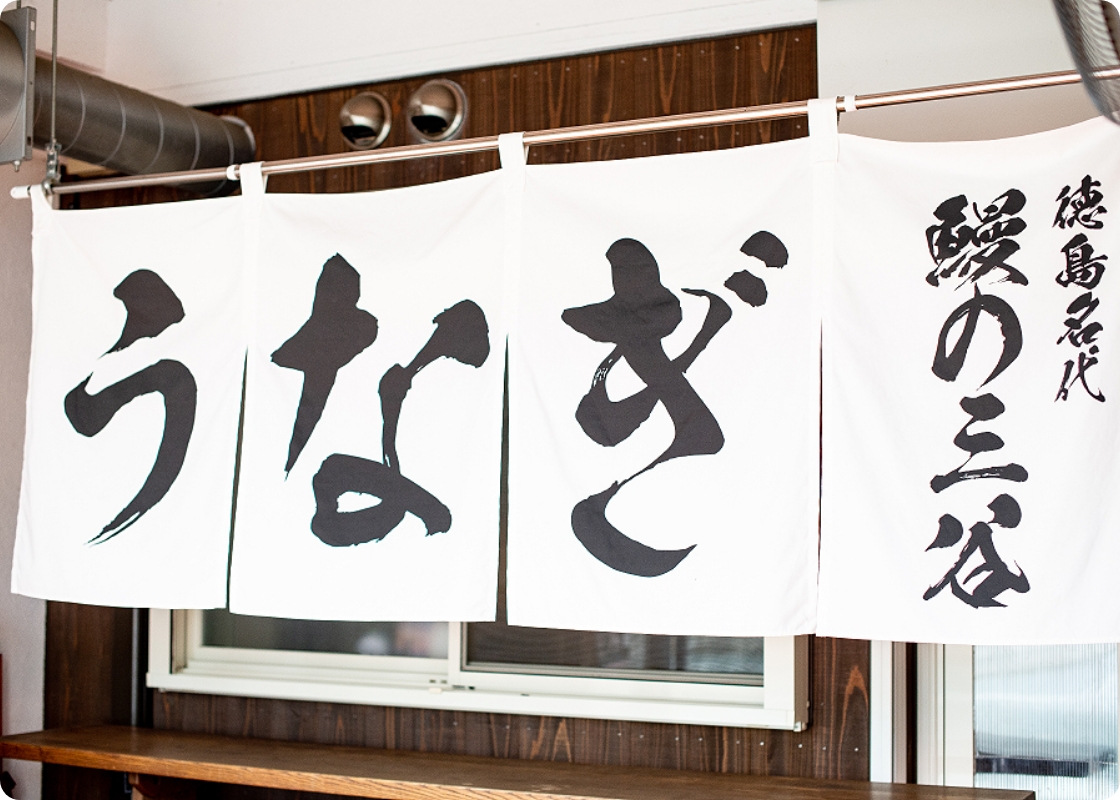 うなぎ
徳島名代
鰻の三谷